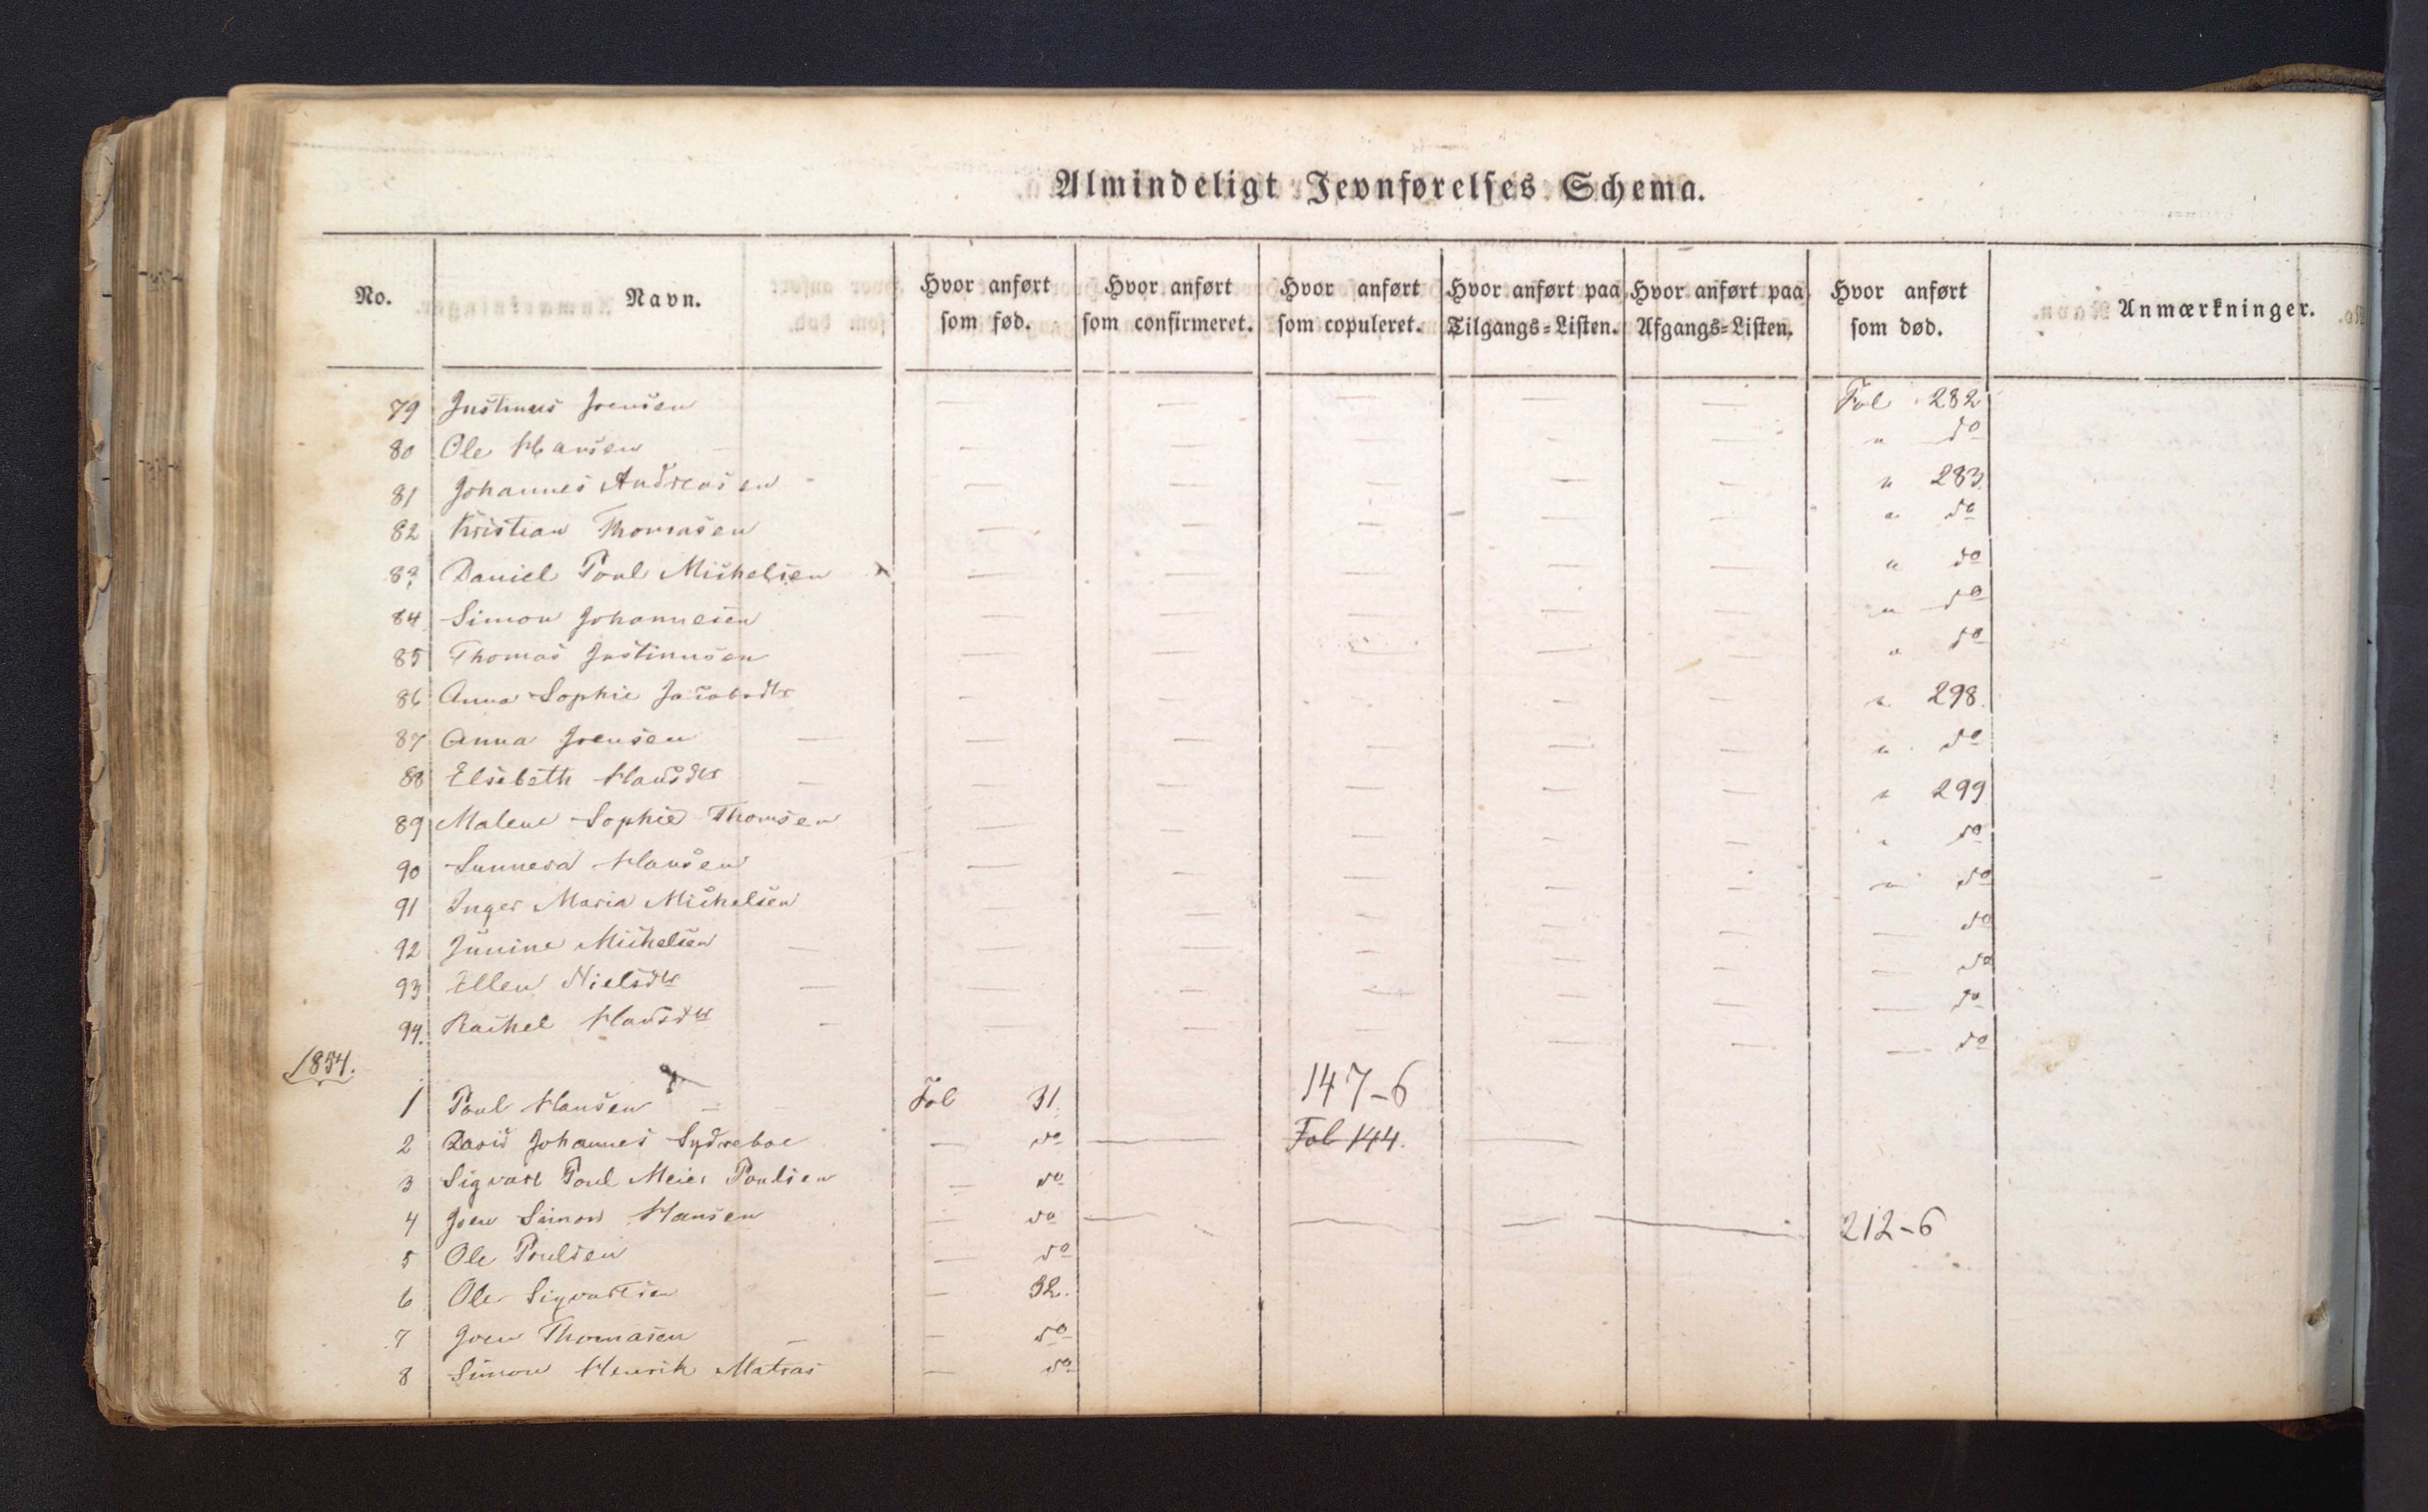 Almindeligt Jevnførelses Schema.
No. Navn. Hvor anført som fød. Hvor anført som confirmeret. Hvor anført som copuleret. Hvor anført paa Tilgangs=Listen. Hvor anført paa Afgangs=Listen. Hvor anført som død. Anmærkninger.
79 Justinus Joensen — — — — — Fol 282
80 Ole Hansen — — — — — " do
81 Johannes Andreasen — — — — — " 283
82 Kristian Thomasen — — — — — " do
83 Daniel Poul Michelsen — — — — — " do
84 Simon Johannesen — — — — — " do
85 Thomas Justinusen — — — — — " do
86 Anna Sophie Jacobsdtr — — — — — " 298.
87 Anna Joensen — — — — — " do
88 Elsebeth Hansdtr — — — — — " 299
89 Malene Sophie Thomsen — — — — — " do
90 Sunneva Hansen — — — — — " do
91 Inger Maria Michelsen — — — — — do
92 Junine Michelsen — — — — — do
93 Ellen Nielsdtr — — — — — do
94. Rachel Hansdtr — — — — — do
1854.
1 Poul Hansen — Fol 31. 147-6
2 David Johannes Sydreboe — do — Fol 144. —
3 Sigvart Poul Meier Poulsen — do
4 Joen Simon Hansen — do — — — — 212-6
5 Ole Poulsen — do
6 Ole Sigvartsen — 32.
7 Joen Thomasen — do
8 Simon Henrik Matras — do